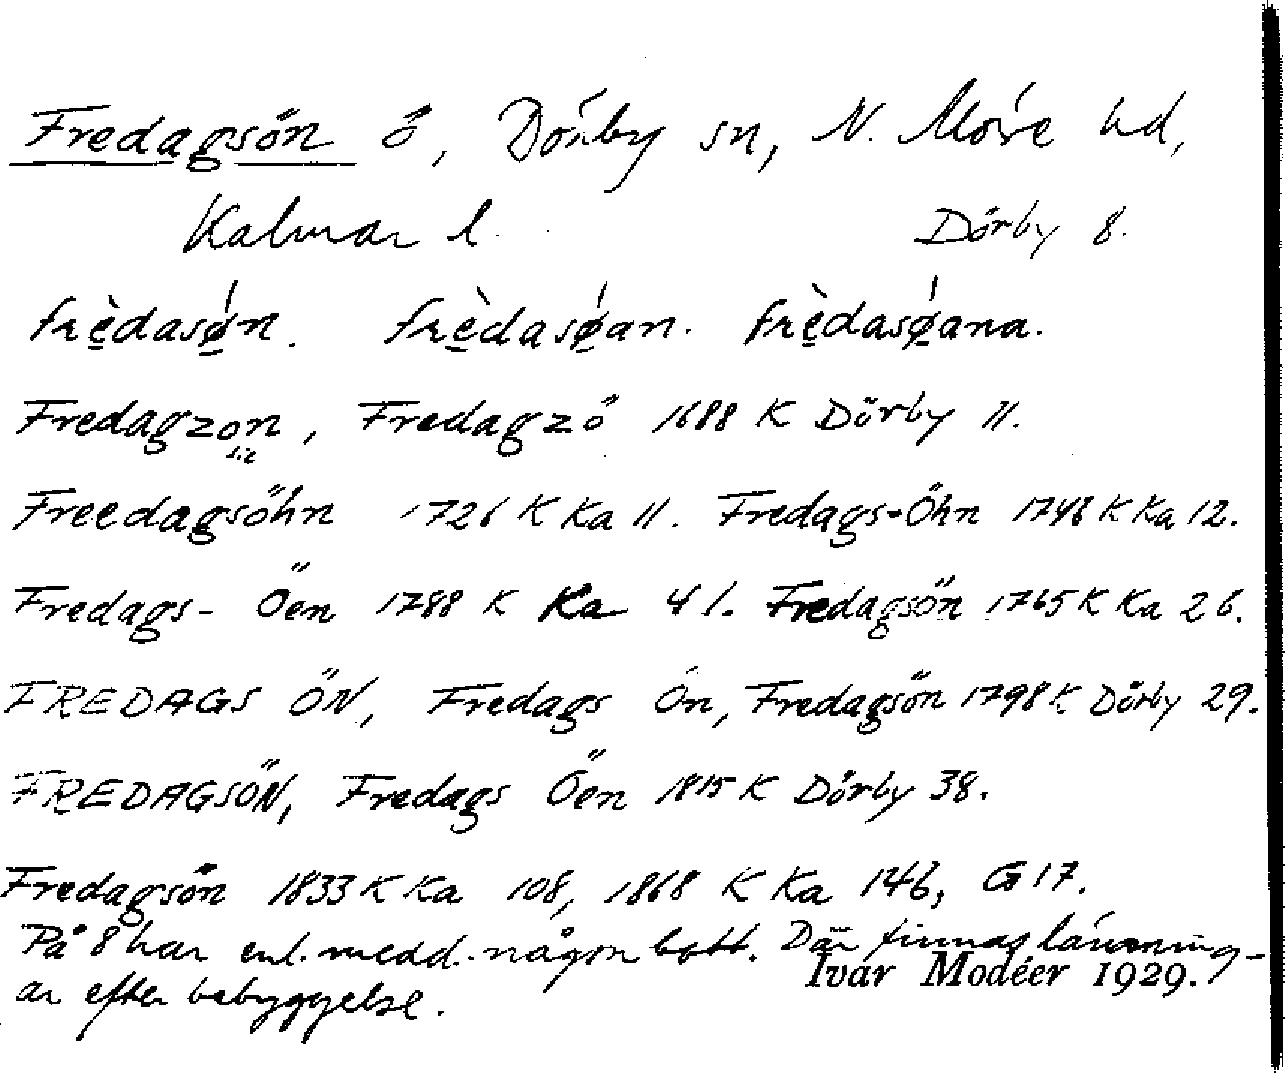 Fredagsön ö, Dörby sn, N. Möre hd,
Kalmar l. Dörby 8.
frèdasǿn. frèdasǿan. frèdasǿana.
Fredagzon, Fredagzö 1688 K Dörby 11.
sic
Freedagsöhn 1726 K Ka 11. Fredags-Öhn 1748 K Ka 12.
Fredags- Öen 1788 K Ka 41. Fredagsön 1765 K Ka 26.
FREDAGS ÖN, Fredags Ön, Fredagsön 1798 K Dörby 29.
FREDAGSÖN, Fredags Öen 1815 K Dörby 38.
Fredagsön 1833 K Ka 108, 1868 K Ka 146, G 17.
På 8 har enl. medd. någon bott. Där finnas lämning-
ar efter bebyggelse.
Ivar Modéer 1929.